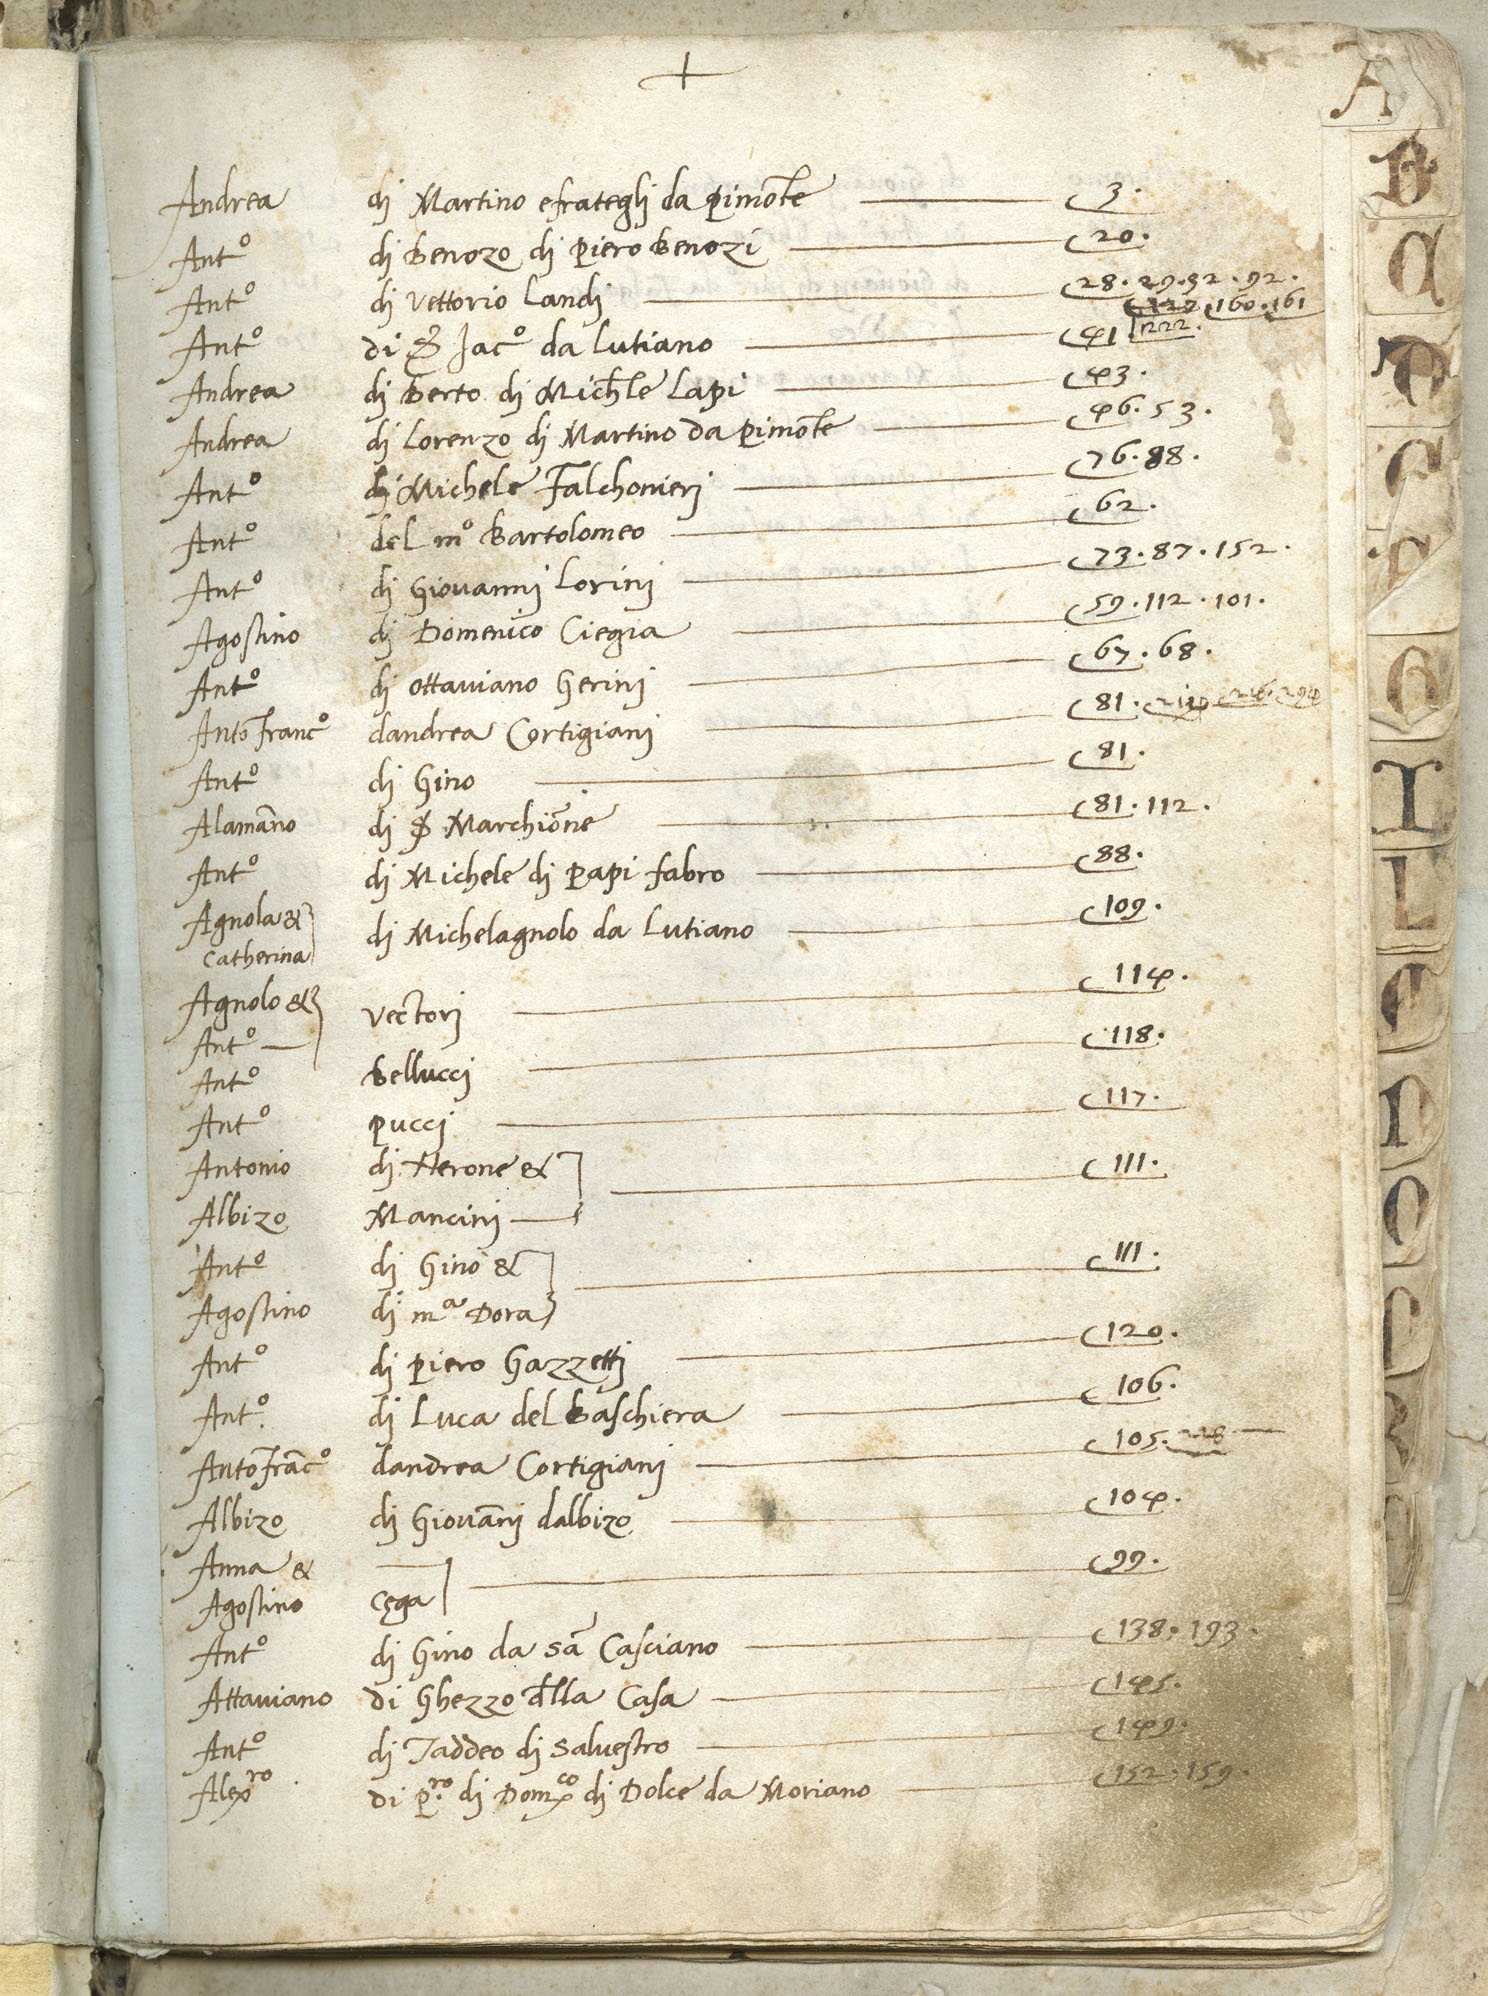 A
Andrea di Martino efrategli da pimōte c 3.
Antº di benozo di piero benozi c 20.
Antº di Vettorio Landi c 28. 29. 32. 92.
160. 161
Antº di Ser Jacº da Lutiano c 41 222.
Andrea di berto di Michele Lapi c 43.
Andrea di Lorenzo di Martino da pimōte c 46. 53.
Antº di Michele Falchonieri c 76. 88.
Antº del mº bartolomeo c 62.
Antº di Giovanni Lorini c 73. 87. 152.
Agostino di Domenico Ciegia c 59. 112. 101.
Antº di ottaviano Gerini c 67. 68.
Antō francº dandrea Cortigiani c 81.
Antº di Gino c 81.
Alamāno di Ser Marchiōne c 81. 112.
Antº di Michele di papi fabro c 88.
Agnola &
Catherina di Michelagnolo da Lutiano c 109.
Agnolo &
Antº Vectori c 114.
Antº bellucci c 118.
Antº pucci c 117.
Antonio di Nerone & c 111.
Albizo Mancini
Antº di Gino & c 111.
Agostino di mª Dora
Antº di piero Gazzetti c 120.
Antº. di Luca del baschiera c 106.
Antō frācº dandrea Cortigiani c 105. 228
Albizo di Giovāni dalbizo c 104.
Anna & c 99.
Agostino Cęga
Antº di Gino da sā Casciano c 138. 193.
Attaviano di Ghezzo della Casa c 145.
Antº di Taddeo di salvestro c 149.
Alexro di p.ro di Domco di Dolce da Moriano c 152. 159.
B
D
G
I
L
O